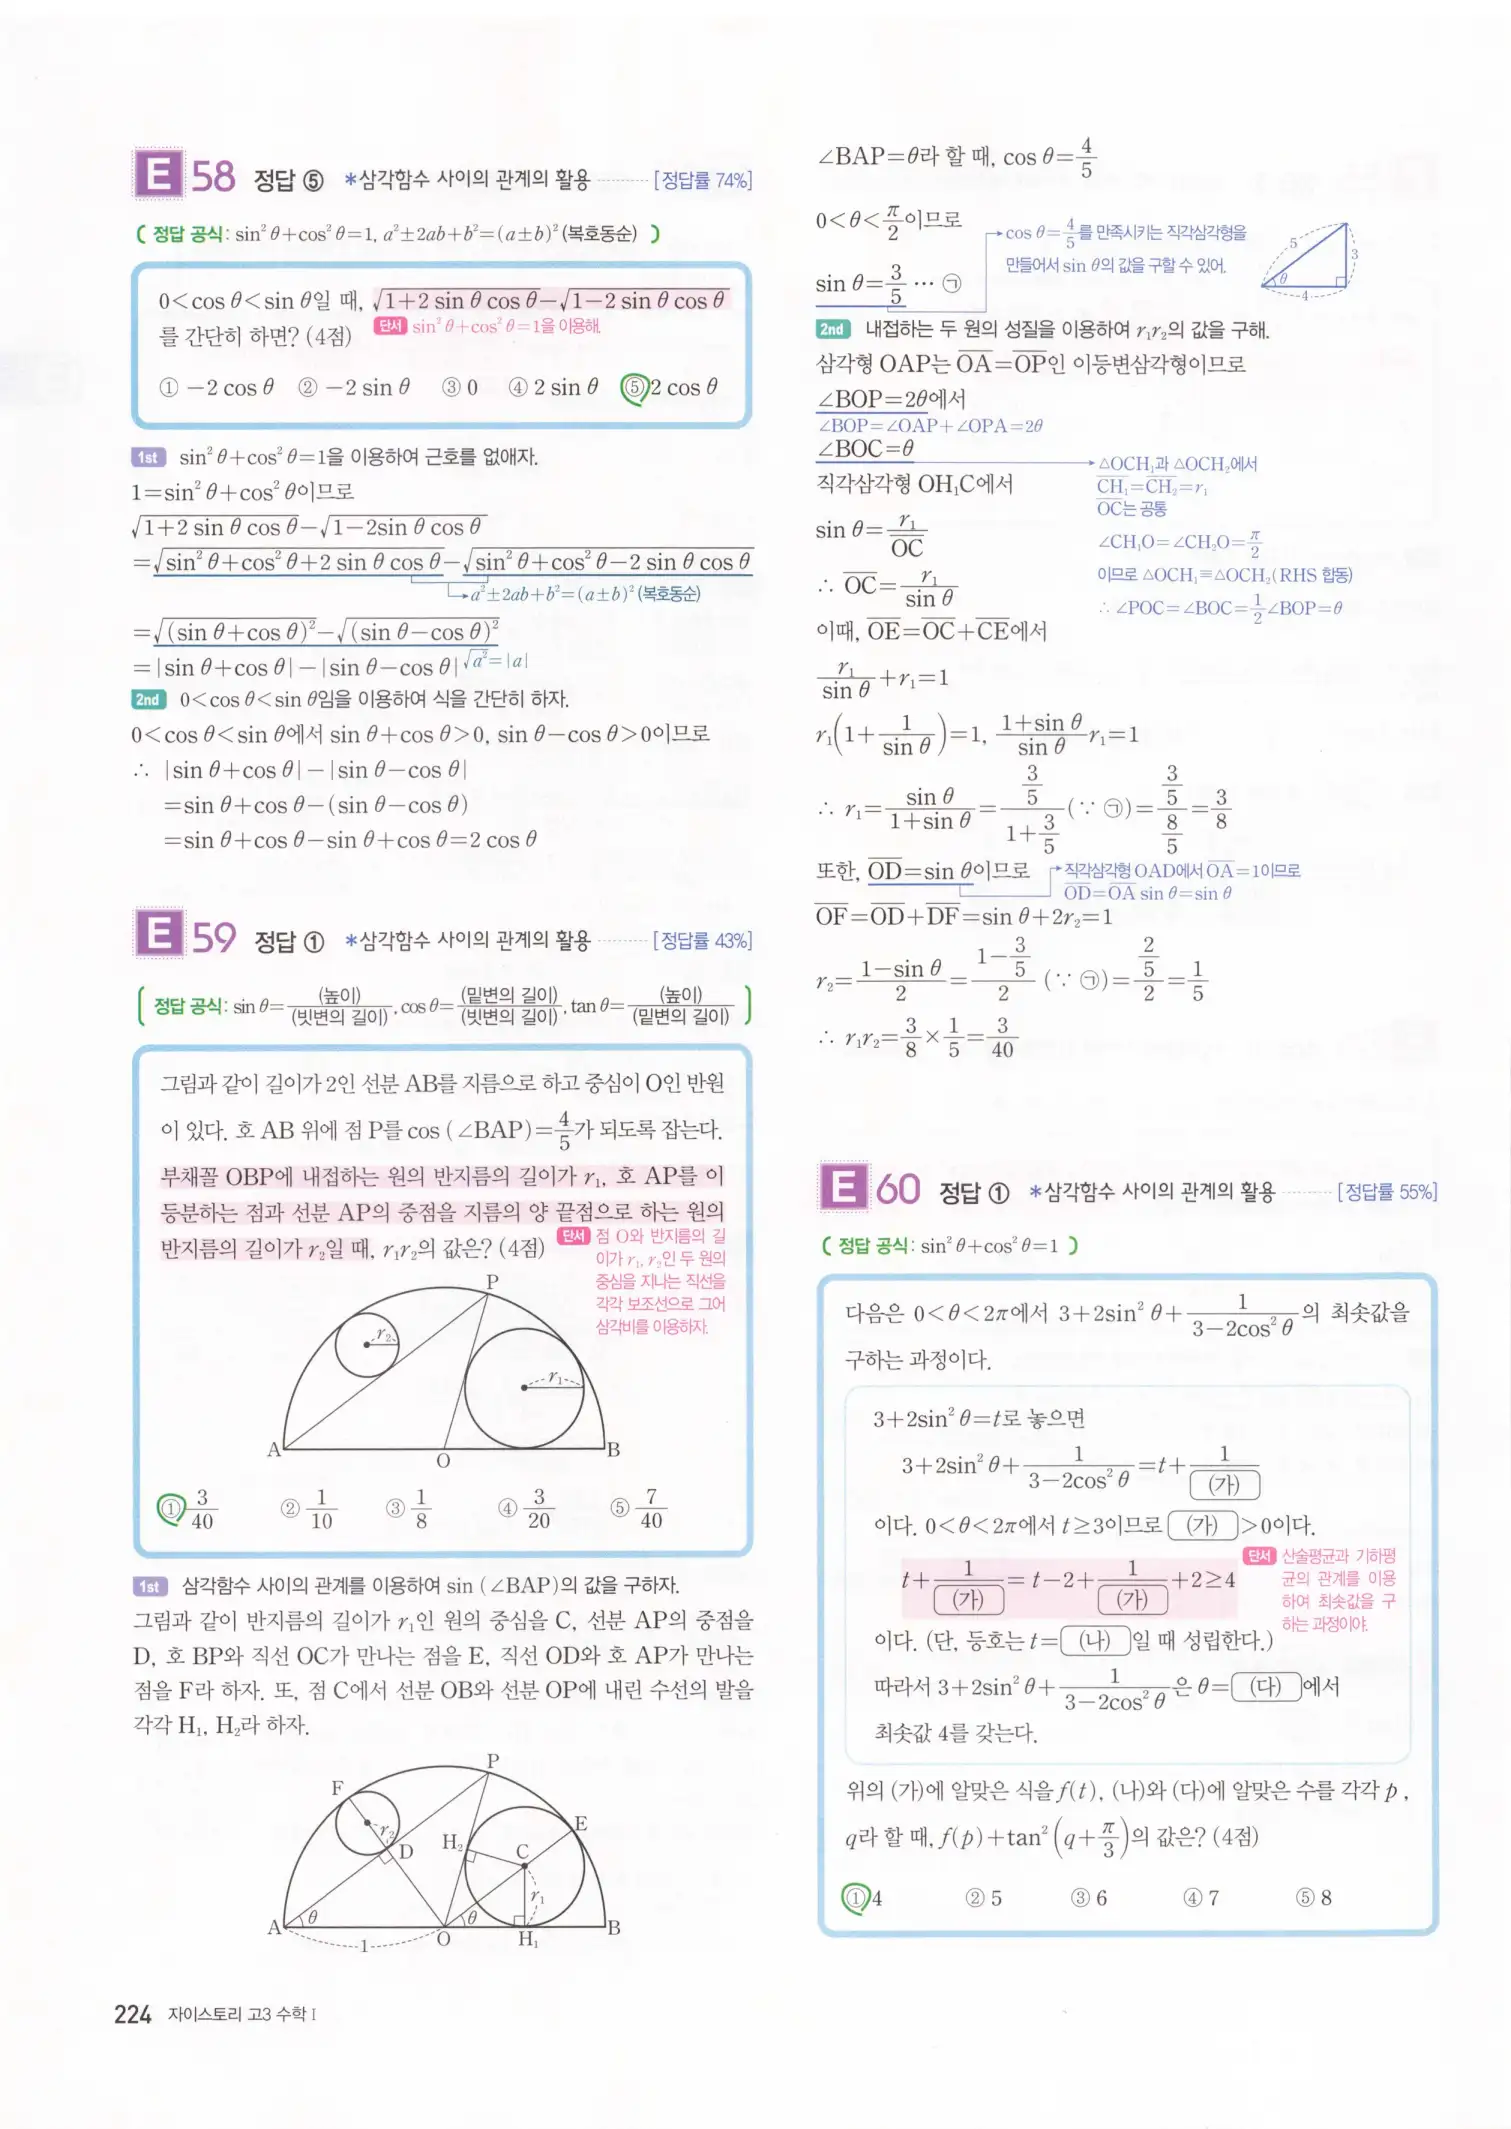 E 58 정답 ⑤ *삼각함수 사이의 관계의 활용 [정답률 74%]
( 정답 공식: sin² θ+cos² θ=1, a²±2ab+b²=(a±b)² (복호동순) )
0<cos θ<sin θ일 때, √(1+2 sin θ cos θ)−√(1−2 sin θ cos θ)
를 간단히 하면? (4점) 단서 sin² θ+cos² θ=1을 이용해.
① −2 cos θ ② −2 sin θ ③ 0 ④ 2 sin θ ⑤ 2 cos θ
1st sin² θ+cos² θ=1을 이용하여 근호를 없애자.
1=sin² θ+cos² θ이므로
√(1+2 sin θ cos θ)−√(1−2sin θ cos θ)
=√(sin² θ+cos² θ+2 sin θ cos θ)−√(sin² θ+cos² θ−2 sin θ cos θ)
a²±2ab+b²=(a±b)² (복호동순)
=√((sin θ+cos θ)²)−√((sin θ−cos θ)²)
=|sin θ+cos θ|−|sin θ−cos θ| √(a²)=|a|
2nd 0<cos θ<sin θ임을 이용하여 식을 간단히 하자.
0<cos θ<sin θ에서 sin θ+cos θ>0, sin θ−cos θ>0이므로
∴ |sin θ+cos θ|−|sin θ−cos θ|
=sin θ+cos θ−(sin θ−cos θ)
=sin θ+cos θ−sin θ+cos θ=2 cos θ
E 59 정답 ① *삼각함수 사이의 관계의 활용 [정답률 43%]
( 정답 공식: sin θ=(높이)/(빗변의 길이), cos θ=(밑변의 길이)/(빗변의 길이), tan θ=(높이)/(밑변의 길이) )
그림과 같이 길이가 2인 선분 AB를 지름으로 하고 중심이 O인 반원
이 있다. 호 AB 위에 점 P를 cos (∠BAP)=4/5가 되도록 잡는다.
부채꼴 OBP에 내접하는 원의 반지름의 길이가 r₁, 호 AP를 이
등분하는 점과 선분 AP의 중점을 지름의 양 끝점으로 하는 원의
반지름의 길이가 r₂일 때, r₁r₂의 값은? (4점)
단서 점 O와 반지름의 길
이가 r₁, r₂인 두 원의
중심을 지나는 직선을
각각 보조선으로 그어
삼각비를 이용하자.
P
r₂
r₁
A
O
B
① 3/40 ② 1/10 ③ 1/8 ④ 3/20 ⑤ 7/40
1st 삼각함수 사이의 관계를 이용하여 sin (∠BAP)의 값을 구하자.
그림과 같이 반지름의 길이가 r₁인 원의 중심을 C, 선분 AP의 중점을
D, 호 BP와 직선 OC가 만나는 점을 E, 직선 OD와 호 AP가 만나는
점을 F라 하자. 또, 점 C에서 선분 OB와 선분 OP에 내린 수선의 발을
각각 H₁, H₂라 하자.
P
F
E
r₂
D
H₂
C
r₁
A
θ
O
θ
H₁
B
1
224 자이스토리 고3 수학 I
∠BAP=θ라 할 때, cos θ=4/5
0<θ<π/2이므로
sin θ=3/5 ⋯ ㉠
cos θ=4/5를 만족시키는 직각삼각형을
만들어서 sin θ의 값을 구할 수 있어.
5
3
θ
4
2nd 내접하는 두 원의 성질을 이용하여 r₁r₂의 값을 구해.
삼각형 OAP는 OA=OP인 이등변삼각형이므로
∠BOP=2θ에서
∠BOP=∠OAP+∠OPA=2θ
∠BOC=θ
△OCH₁과 △OCH₂에서
CH₁=CH₂=r₁
OC는 공통
∠CH₁O=∠CH₂O=π/2
이므로 △OCH₁≡△OCH₂(RHS 합동)
∴ ∠POC=∠BOC=1/2∠BOP=θ
직각삼각형 OH₁C에서
sin θ=r₁/OC
∴ OC=r₁/sin θ
이때, OE=OC+CE에서
r₁/sin θ+r₁=1
r₁(1+1/sin θ)=1, (1+sin θ)/sin θ r₁=1
∴ r₁=sin θ/(1+sin θ)=(3/5)/(1+3/5)(∵ ㉠)=(3/5)/(8/5)=3/8
또한, OD=sin θ이므로
직각삼각형 OAD에서 OA=1이므로
OD=OA sin θ=sin θ
OF=OD+DF=sin θ+2r₂=1
r₂=(1−sin θ)/2=(1−3/5)/2 (∵ ㉠)=(2/5)/2=1/5
∴ r₁r₂=3/8×1/5=3/40
E 60 정답 ① *삼각함수 사이의 관계의 활용 [정답률 55%]
( 정답 공식: sin² θ+cos² θ=1 )
다음은 0<θ<2π에서 3+2sin² θ+1/(3−2cos² θ)의 최솟값을
구하는 과정이다.
3+2sin² θ=t로 놓으면
3+2sin² θ+1/(3−2cos² θ)=t+1/(가)
이다. 0<θ<2π에서 t≥3이므로 (가)>0이다.
t+1/(가)=t−2+1/(가)+2≥4
단서 산술평균과 기하평
균의 관계를 이용
하여 최솟값을 구
하는 과정이야.
이다. (단, 등호는 t=(나)일 때 성립한다.)
따라서 3+2sin² θ+1/(3−2cos² θ)은 θ=(다)에서
최솟값 4를 갖는다.
위의 (가)에 알맞은 식을 f(t), (나)와 (다)에 알맞은 수를 각각 p,
q라 할 때, f(p)+tan²(q+π/3)의 값은? (4점)
① 4 ② 5 ③ 6 ④ 7 ⑤ 8